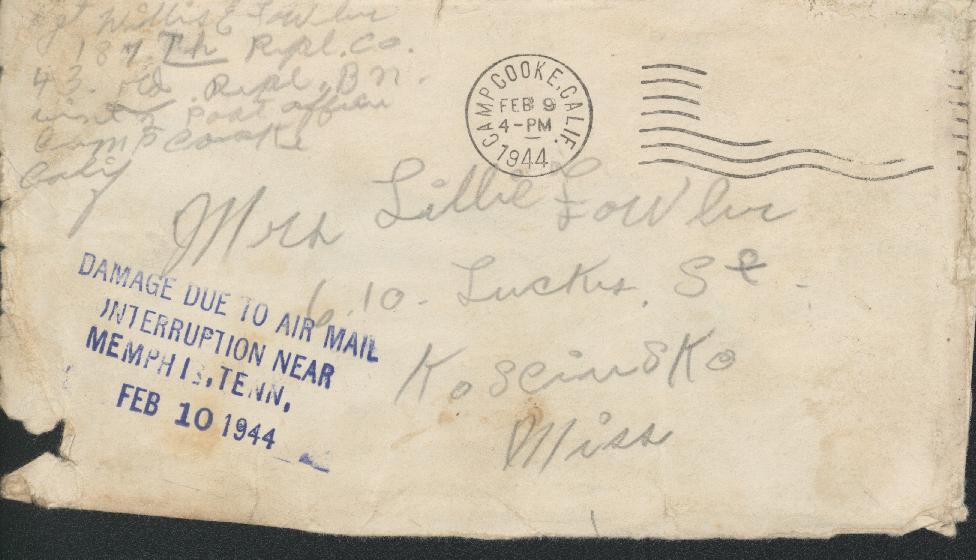 Sgt Willis E Fowler
187. Th Repl. Co.
43. Repl. B n.
Post office
Camp Cooke
Calif
CAMP COOKE, CALIF.
FEB 9
4-PM
1944
Mrs Lillie Fowler
610. Luckes. St.
KosciusKo
Miss
DAMAGE DUE TO AIR MAIL
INTERRUPTION NEAR
MEMPHIS, TENN.
FEB 10 1944